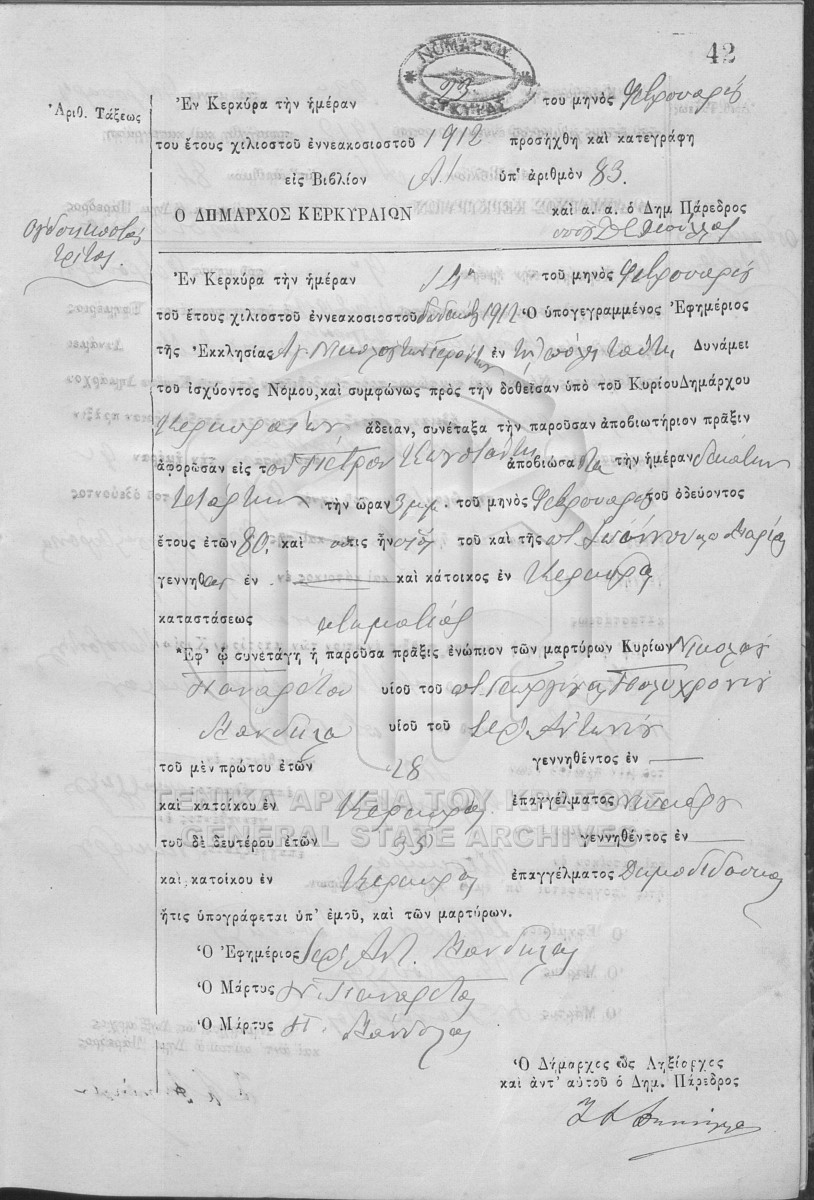 42
ΝΟΜΑΡΧΙΑ
ΚΕΡΚΥΡΑΣ
Ἀριθ. Τάξεως
Ἐν Κερκύρᾳ τὴν ἡμέραν 23 τοῦ μηνὸς Φεβρουαρίου
τοῦ ἔτους χιλιοστοῦ ἐννεακοσιοστοῦ 1912 προσήχθη καὶ κατεγράφη
εἰς Βιβλίον Α! ὑπ' ἀριθμὸν 83.
Ο ΔΗΜΑΡΧΟΣ ΚΕΡΚΥΡΑΙΩΝ
καὶ ἀ. ἀ. ὁ Δημ. Πάρεδρος
Ὀγδοηκοστὸς
τρίτος.
Ἐν Κερκύρᾳ τὴν ἡμέραν 14 τοῦ μηνὸς Φεβρουαρίου
τοῦ ἔτους χιλιοστοῦ ἐννεακοσιοστοῦ δωδεκάτου 1912 Ὁ ὑπογεγραμμένος Ἐφημέριος
τῆς Ἐκκλησίας Ἁγ. Νικολάου τῶν Γερόντων ἐν τῇ πόλει ταύτῃ Δυνάμει
τοῦ ἰσχύοντος Νόμου, καὶ συμφώνως πρὸς τὴν δοθεῖσαν ὑπὸ τοῦ Κυρίου Δημάρχου
Κερκυραίων ἄδειαν, συνέταξα τὴν παροῦσαν ἀποβιωτήριον πρᾶξιν
ἀφορῶσαν εἰς τὸν Πέτρον ἀποβιώσαντα τὴν ἡμέραν δεκάτην
τετάρτην τὴν ὥραν 3 μ.μ. τοῦ μηνὸς Φεβρουαρίου τοῦ ὁδεύοντος
ἔτους ἐτῶν 80, καὶ ὅστις ἦν υἱὸς τοῦ καὶ τῆς Μαρίας
γεννηθεὶς ἐν καὶ κάτοικος ἐν Κερκύρᾳ
καταστάσεως κτηματίας
Ἐφ' ᾧ συνετάγη ἡ παροῦσα πρᾶξις ἐνώπιον τῶν μαρτύρων Κυρίων Νικολάου
Παναρέτου υἱοῦ τοῦ Γεωργίου καὶ Πολυχρονίου
Μάνδηλα υἱοῦ τοῦ Ἱερ. Ἀντωνίου
τοῦ μὲν πρώτου ἐτῶν 28 γεννηθέντος ἐν
καὶ κατοίκου ἐν Κερκύρᾳ ἐπαγγέλματος
τοῦ δὲ δευτέρου ἐτῶν 35 γεννηθέντος ἐν
καὶ κατοίκου ἐν Κερκύρᾳ ἐπαγγέλματος Δημοδιδάσκαλος
ἥτις ὑπογράφεται ὑπ' ἐμοῦ, καὶ τῶν μαρτύρων.
Ὁ Ἐφημέριος Ἱερ. Ἀντ. Μάνδηλας
Ὁ Μάρτυς Ν. Πανάρετος
Ὁ Μάρτυς Π. Μάνδηλας
Ὁ Δήμαρχος ὡς Ληξίαρχος
καὶ ἀντ' αὐτοῦ ὁ Δημ. Πάρεδρος
ΓΕΝΙΚΑ ΑΡΧΕΙΑ ΤΟΥ ΚΡΑΤΟΥΣ
GENERAL STATE ARCHIVES